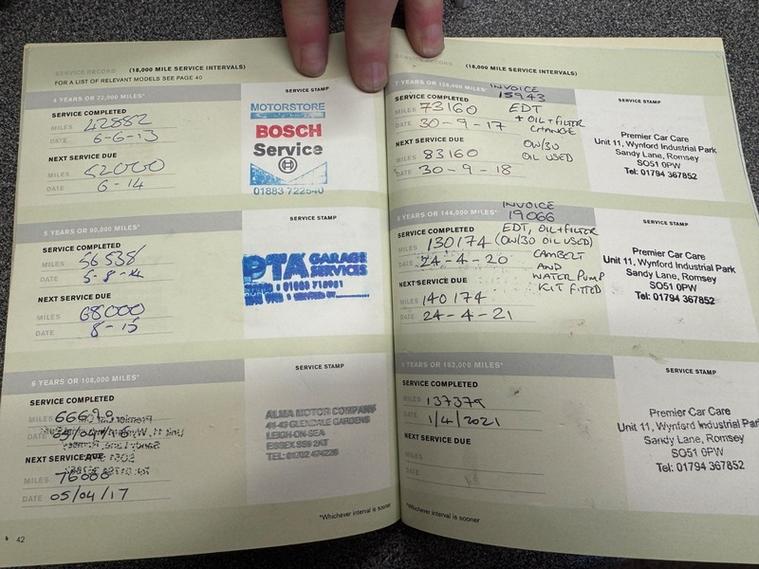 SERVICE RECORD (18,000 MILE SERVICE INTERVALS)
FOR A LIST OF RELEVANT MODELS SEE PAGE 40
4 YEARS OR 72,000 MILES*
SERVICE STAMP
SERVICE COMPLETED
MILES 42882
DATE 6-6-13
NEXT SERVICE DUE
MILES 52000
DATE 6-14
MOTORSTORE
BOSCH
Service
01883 722540
5 YEARS OR 90,000 MILES*
SERVICE STAMP
SERVICE COMPLETED
MILES 56538
DATE 5-8-14
NEXT SERVICE DUE
MILES 68000
DATE 8-15
PTA GARAGE
SERVICES
6 YEARS OR 108,000 MILES*
SERVICE STAMP
SERVICE COMPLETED
MILES 66690
DATE
NEXT SERVICE DUE
MILES 76000
DATE 05/04/17
ALMA MOTOR COMPANY
41-43 GLENDALE GARDENS
LEIGH-ON-SEA
ESSEX
TEL: 01702
*Whichever interval is sooner
42
SERVICE RECORD (18,000 MILE SERVICE INTERVALS)
7 YEARS OR 126,000 MILES*
INVOICE
SERVICE STAMP
SERVICE COMPLETED
MILES 73160 EDT
DATE 30-9-17 + OIL + FILTER
CHANGE
NEXT SERVICE DUE
MILES 83160 OW/30
DATE 30-9-18 OIL USED
Premier Car Care
Unit 11, Wynford Industrial Park
Sandy Lane, Romsey
SO51 0PW
Tel: 01794 367852
8 YEARS OR 144,000 MILES*
INVOICE
19066
SERVICE STAMP
SERVICE COMPLETED EDT, OIL+FILTER
MILES 130174 (OW/30 OIL USED)
DATE 24-4-20 CAMBELT
AND
WATER PUMP
KIT FITTED
NEXT SERVICE DUE
MILES 140174
DATE 24-4-21
Premier Car Care
Unit 11, Wynford Industrial Park
Sandy Lane, Romsey
SO51 0PW
Tel: 01794 367852
9 YEARS OR 162,000 MILES*
SERVICE STAMP
SERVICE COMPLETED
MILES 137379
DATE 1/4/2021
NEXT SERVICE DUE
MILES
DATE
Premier Car Care
Unit 11, Wynford Industrial Park
Sandy Lane, Romsey
SO51 0PW
Tel: 01794 367852
*Whichever interval is sooner